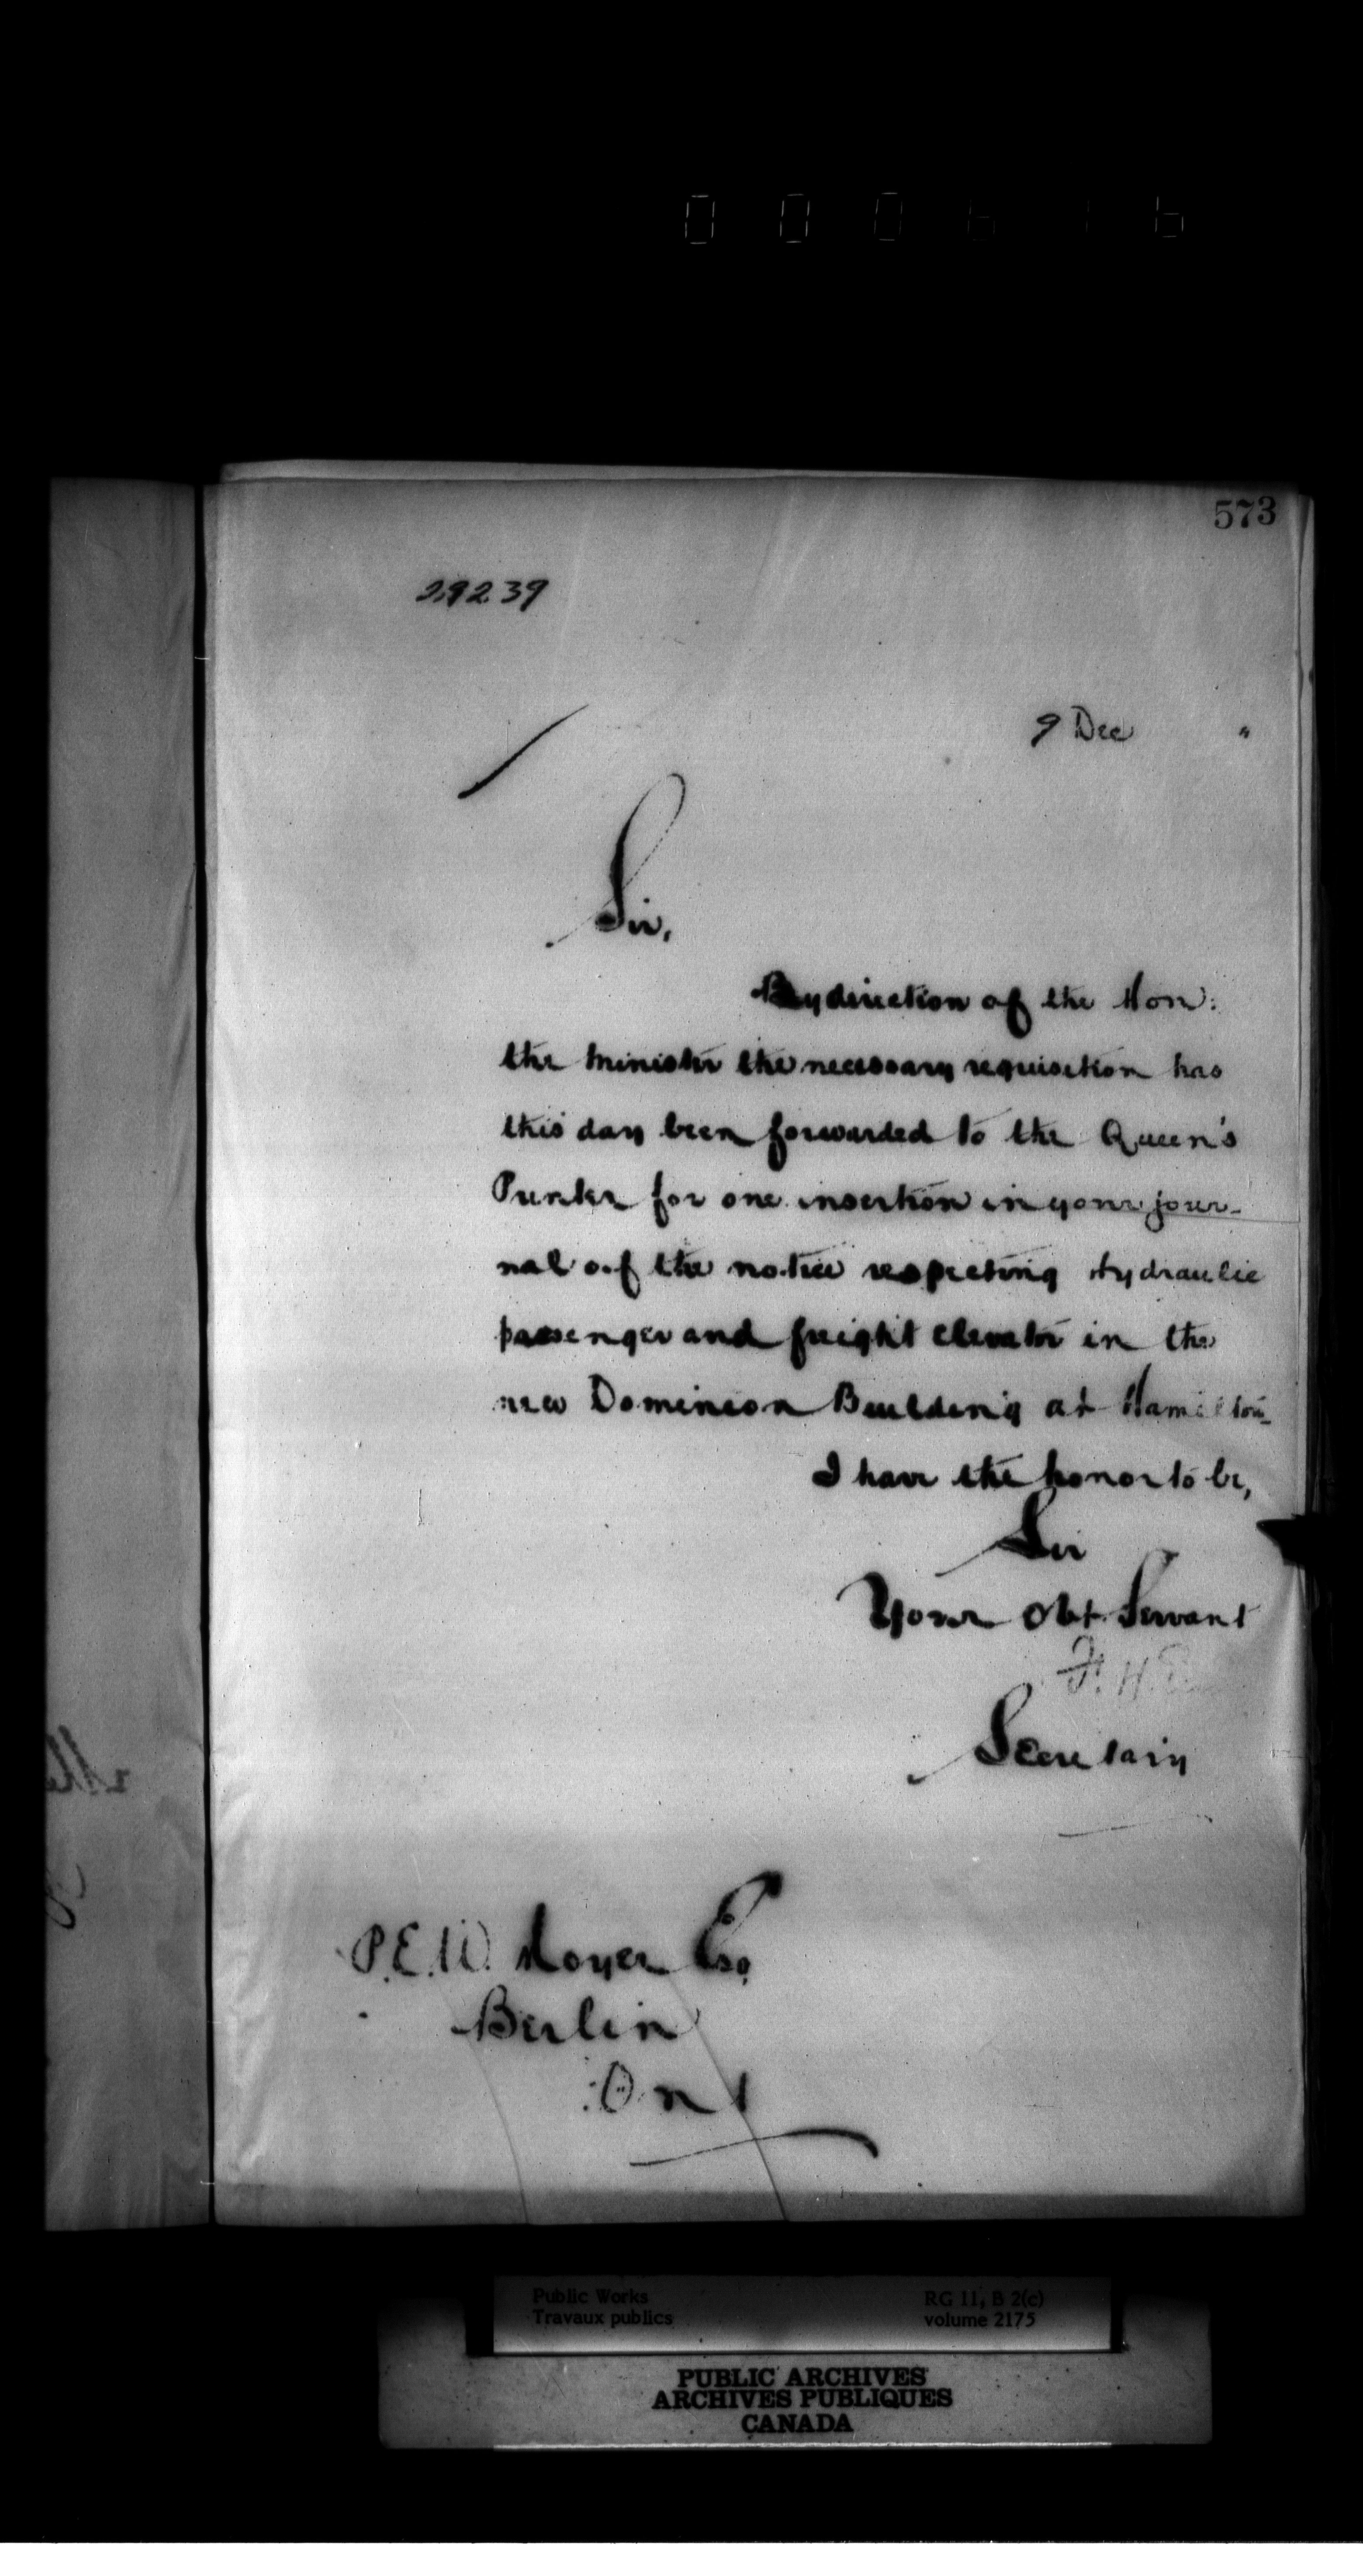 000616
573
29239
9 Dec "
Sir,
By direction of the Hon:
the Minister the necessary requisition has
this day been forwarded to the Queen's
Printer for one insertion in your jour-
nal of the notice respecting Hydraulic
passenger and freight elevator in the
new Dominion Building at Hamilton_
I have the honor to be,
Sir
Your Obt Servant
F. H.
Secretary
P.E.W. Moyer Esq
Berlin
Ont
Public Works
Travaux publics
RG 11, B 2(c)
volume 2175
PUBLIC ARCHIVES
ARCHIVES PUBLIQUES
CANADA